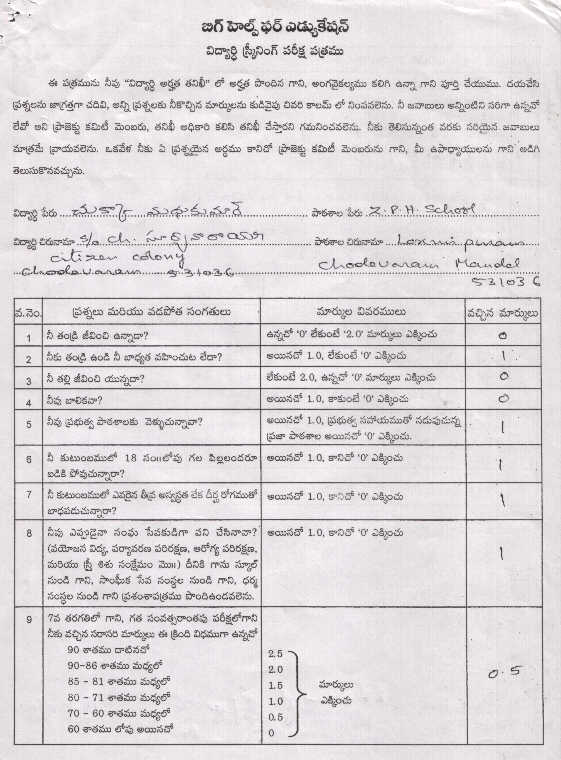 బిగ్ హెల్ప్ ఫర్ ఎడ్యుకేషన్
విద్యార్ధి స్క్రీనింగ్ పరీక్ష పత్రము
ఈ పత్రమును నీవు "విద్యార్ధి అర్హత తనిఖీ" లో అర్హత పొందిన గాని, అంగవైకల్యము కలిగి ఉన్నా గాని పూర్తి చేయుము. దయచేసి
ప్రశ్నలను జాగ్రత్తగా చదివి, అన్ని ప్రశ్నలకు నీకొచ్చిన మార్కులను కుడివైపు చివరి కాలమ్ లో నింపవలెను. నీ జవాబులు అన్నింటిని సరిగా ఉన్నవో
లేవో అని ప్రాజెక్టు కమిటీ మెంబరు, తనిఖీ అధికారి కలిసి తనిఖీ చేస్తారని గమనించవలెను. నీకు తెలిసునన్నంత వరకు సరియైన జవాబులు
మాత్రమే వ్రాయవలెను. ఒకవేళ నీకు ఏ ప్రశ్నయైన అర్థము కానిచో ప్రాజెక్టు కమిటీ మెంబరును గాని, మీ ఉపాధ్యాయులను గాని అడిగి
తెలుసుకొనవచ్చును.
విద్యార్థి పేరు పాఠశాల పేరు Z.P.H. School
విద్యార్థి చిరునామా S/o Ch. సూర్యనారాయణ పాఠశాల చిరునామా Laxmipuram
citizen colony Chodavaram Mandal
Chodavaram 531036 531036
వ.నెం. ప్రశ్నలు మరియు వడపోత సంగతులు మార్కుల వివరములు వచ్చిన మార్కులు
1 నీ తండ్రి జీవించి ఉన్నాడా? ఉన్నచో '0' లేకుంటే '2.0' మార్కులు ఎక్కించు 0
2 నీకు తండ్రి ఉండి నీ బాధ్యత వహించుట లేదా? అయినచో 1.0, లేకుంటే '0' ఎక్కించు 1
3 నీ తల్లి జీవించి యున్నదా? లేకుంటే 2.0, ఉన్నచో '0' మార్కులు ఎక్కించు 0
4 నీవు బాలికవా? అయినచో 1.0, కాకుంటే '0' ఎక్కించు 0
5 నీవు ప్రభుత్వ పాఠశాలకు వెళ్ళుచున్నావా? అయినచో 1.0, ప్రభుత్వ సహాయముతో నడుపుచున్న 1
ప్రజా పాఠశాల అయినచో '0' ఎక్కించు.
6 నీ కుటుంబములో 18 సం॥లోపు గల పిల్లలందరూ అయినచో 1.0, కానిచో '0' ఎక్కించు 1
బడికి పోవుచున్నారా?
7 నీ కుటుంబములో ఎవరైన తీవ్ర అస్వస్థత లేక దీర్ఘ రోగముతో అయినచో 1.0, కానిచో '0' ఎక్కించు 1
బాధపడుచున్నారా?
8 నీవు ఎప్పుడైనా సంఘ సేవకుడిగా పని చేసినావా? అయినచో 1.0, కానిచో '0' ఎక్కించు 1
(వయోజన విద్య, పర్యావరణ పరిరక్షణ, ఆరోగ్య పరిరక్షణ,
మరియు స్త్రీ శిశు సంక్షేమం మొ॥) దీనికి గాను స్కూల్
నుండి గాని, సాంఘీక సేవ సంస్థల నుండి గాని, ధర్మ
సంస్థల నుండి గాని ప్రశంశాపత్రము పొందిఉండవలెను.
9 7వ తరగతిలో గాని, గత సంవత్సరాంతపు పరీక్షలోగాని
నీకు వచ్చిన సరాసరి మార్కులు ఈ క్రింది విధముగా ఉన్నచో
90 శాతము దాటినచో 2.5
90-86 శాతము మధ్యలో 2.0 0.5
85 - 81 శాతము మధ్యలో 1.5 మార్కులు
80 - 71 శాతము మధ్యలో 1.0 ఎక్కించు
70 - 60 శాతము మధ్యలో 0.5
60 శాతము లోపు అయినచో 0